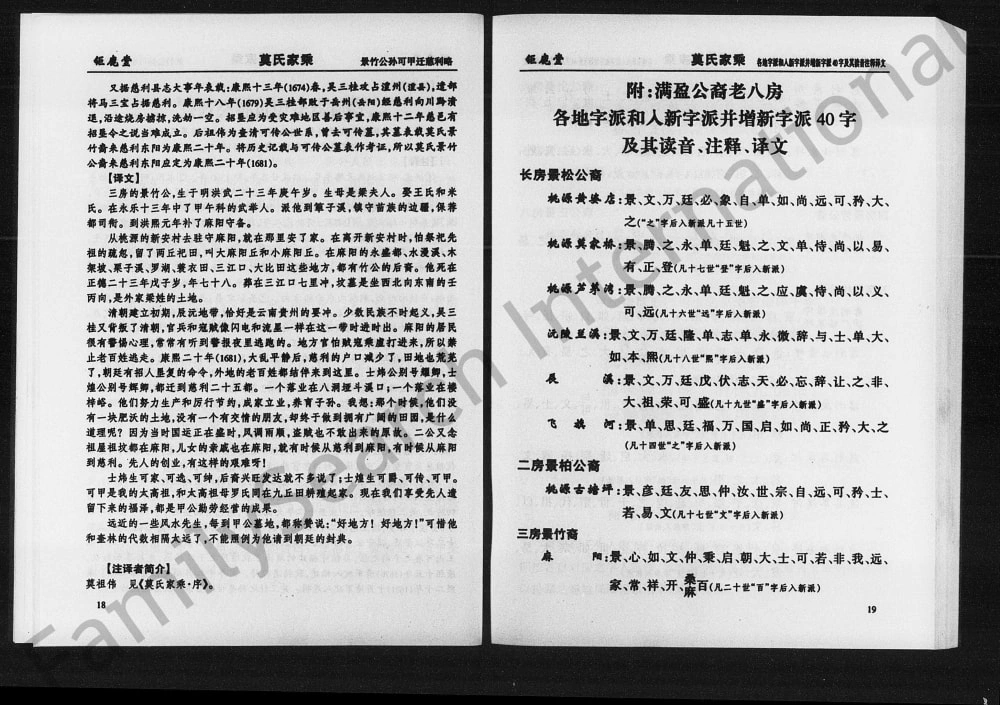 钜鹿堂 莫氏家乘 景竹公孙可甲迁慈利略
又据慈利县志大事年表载:康熙十三年(1674)春,吴三桂攻占澧州(澧县),遣部
将马三宝占据慈利。康熙十八年(1679)吴三桂部败于岳州(岳阳)经慈利向川黔溃
退,沿途烧房掳掠,洗劫一空。招垦应为受灾难地区善后事宜,康熙十二年慈邑有
招垦令之说当难成立。后祖伟为查清可传公世系,曾去可传墓,其墓表载莫氏景
竹裔来慈利东阳为康熙二十年。将历史记载与可传公墓表作考证,所以莫氏景竹
公裔来慈利东阳应定为康熙二十年(1681)。
【译文】
三房的景竹公,生于明洪武二十三年庚午岁。生母是梁夫人。娶王氏和米
氏。在永乐十三年中了甲午科的武举人。派他到箄子溪,镇守苗族的边疆,保荐
都司衔。到洪熙元年补了麻阳守备。
从桃源的新安村去驻守麻阳,就在那里安了家。在离开新安村时,怕祭祀先
祖的疏忽,留了两丘祀田,叫大麻阳丘和小麻阳丘。在麻阳的永盛都、水漫溪、木
架坡、栗子溪、罗湖、蓑衣田、三江口、大比田这些地方,都有竹公的后裔。他死在
正德二十三年戊子岁,年七十八。葬在三江口七里冲,坟墓是坐西北向东南的壬
丙向,是外家梁姓的土地。
清朝建立初期,辰沅地带,恰好是云南贵州的要冲。少数民族不时起义,吴三
桂又背叛了清朝,官兵和寇贼像闪电和流星一样在这一带时进时出。麻阳的居民
很有警惕心理,常常有听到警报夜里逃跑的。地方官怕贼寇乘虚打进来,所以禁
止老百姓逃走。康熙二十年(1681),大乱平静后,慈利的户口减少了,田地也荒芜
了,朝廷有招人垦复的命令,外地的老百姓都结伴来到这里。士炜公别号耀卿,士
煌公别号辉卿,都迁到慈利二十五都。一个落业在八洞垭斗溪口;一个落业在楼
梓峪。他们努力生产和厉行节约,成家立业,养育子孙。我想:那个时候,他们没
有一块肥沃的土地,没有一个有交情的朋友,却终于做到拥有广阔的田园,是什么
道理呢?因为当时国运正在盛时,风调雨顺,盗贼也不敢出来的原故。二公又念
祖屋祖坟都在麻阳,儿女的亲戚也在麻阳,就有时候从慈利到麻阳,有时候从麻阳
到慈利。先人的创业,有这样的艰难呀!
士炜生可家、可选、可绅,后裔兴旺发达就不多说了;士煌生可爵、可传、可甲。
可甲是我的太高祖,和太高祖母罗氏同在九丘田耕殖起家。现在我们享受先人遗
留下来的福泽,都是甲公勤劳经营的成果。
远近的一些风水先生,每到甲公墓地,都称赞说:“好地方!好地方!”可惜他
和奎林的代数相隔太远了,不能照例为他请到朝廷的封典。
【注译者简介】
莫祖伟 见《莫氏家乘·序》。
18
钜鹿堂 莫氏家乘 各地字派和人新字派并增新字派40字及其读音注释译文
附:满盈公裔老八房
各地字派和人新字派并增新字派40字
及其读音、注释、译文
长房景松公裔
桃源黄婆店:景、文、万、廷、必、象、自、单、如、尚、远、可、矜、大、
之(“之”字后入新派凡十五世)
桃源莫家桥:景、腾、之、永、单、廷、魁、之、文、单、恃、尚、以、易、
有、正、登(凡十七世“登”字后入新派)
桃源芦茅湾:景、腾、之、永、单、廷、魁、之、应、虞、恃、尚、以、义、
可、远(凡十六世“远”字后入新派)
沅陵兰溪:景、文、万、廷、隆、单、志、单、永、微、辞、与、士、单、大、
如、本、熙(凡十八世“熙”字后入新派)
辰 溪:景、文、万、廷、戊、伏、志、天、必、忘、辞、让、之、非、
大、祖、荣、可、盛(凡十九世“盛”字后入新派)
飞旗河:景、单、思、廷、福、万、国、启、如、尚、正、矜、大、之
(凡十四世“之”字后入新派)
二房景柏公裔
桃源古塘坪:景、彦、廷、友、思、仲、汝、世、宗、自、远、可、矜、士、
若、易、文(凡十七世“文”字后入新派)
三房景竹裔
麻 阳:景、心、如、文、仲、秉、启、朝、大、士、可、若、非、我、远、
家、常、祥、开、桑麻百(凡二十世“百”字后入新派)
19
FamilySearch International